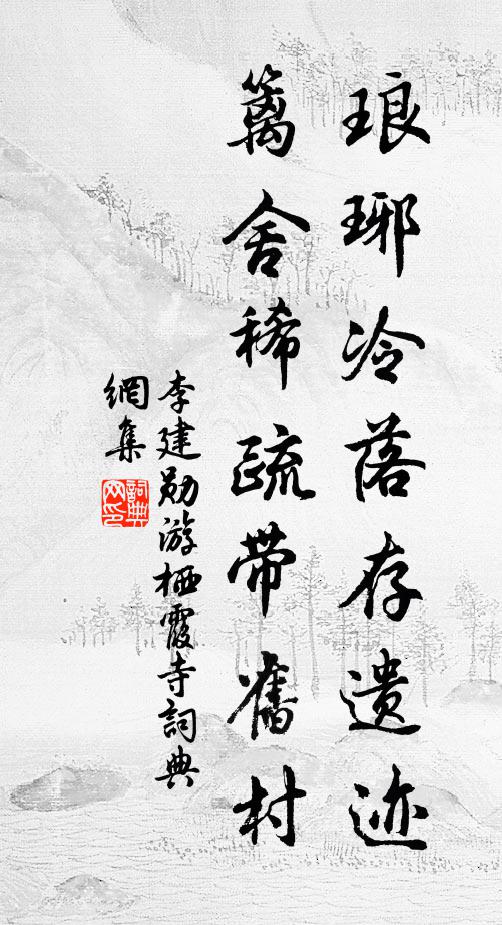 琅琊冷落存遺迹
篱舍稀疏帶舊村
李建勛游栖霞寺詞典
網集
詞典
网印